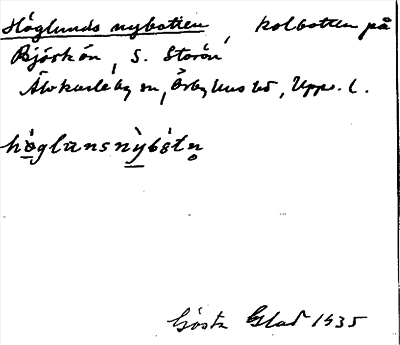 Höglunds nybotten, kolbotten på
Björkön, S. Storön
Älvkarleby sn, Örbyhus hd, Upps. l.
höglansnỳbòtn̥
Gösta Glad 1935